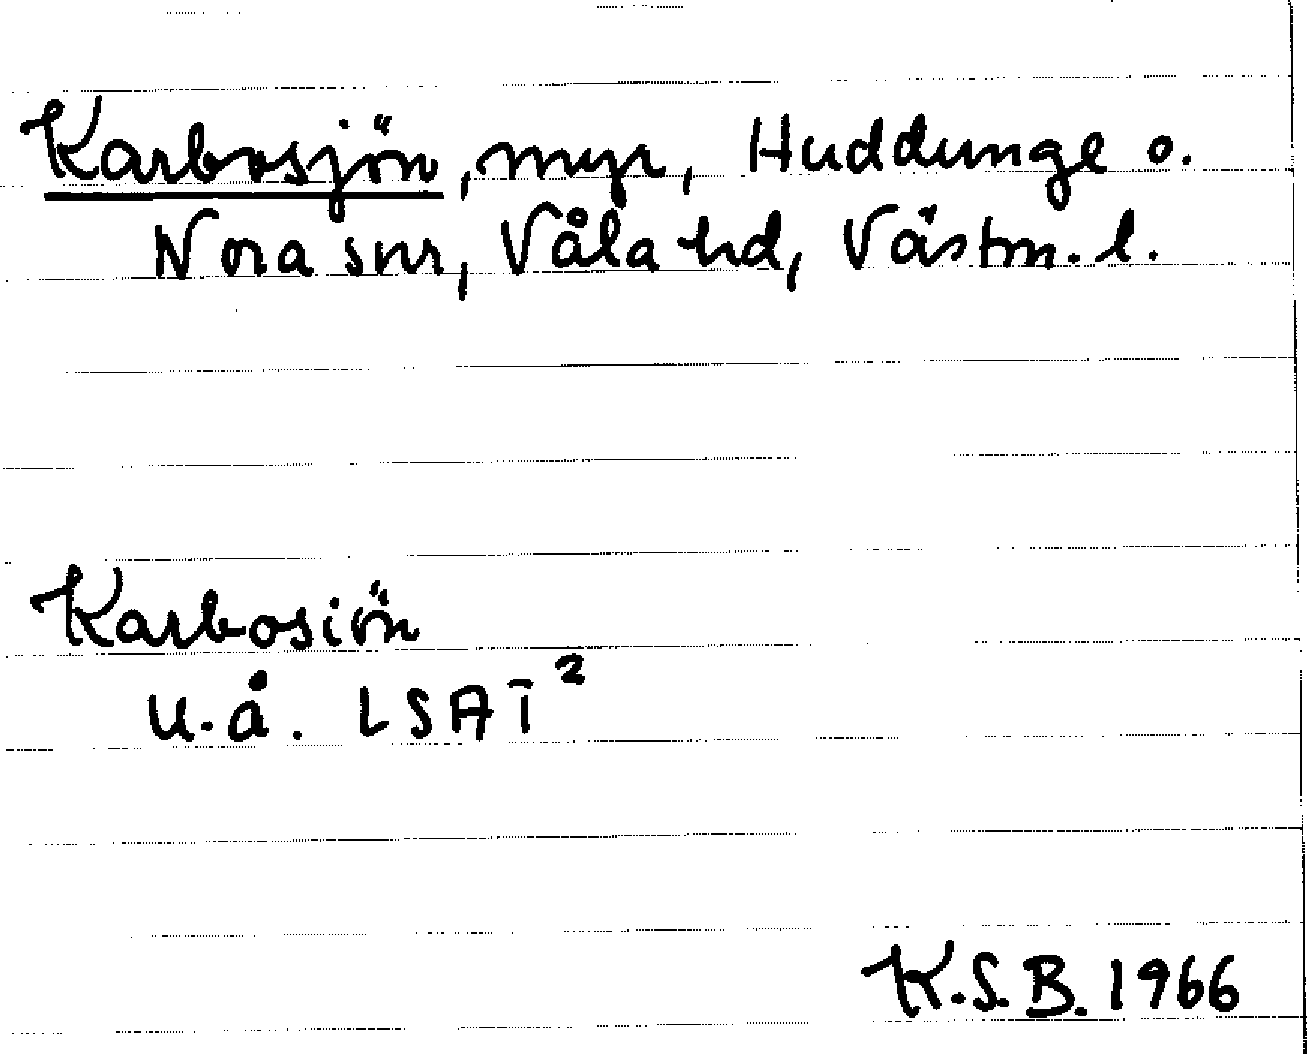 Karbosjön, myr, Huddunge o.
Nora snr, Våla hd, Västm. l.
Karbosiön
u.å. LSAĪ²
K.S.B. 1966